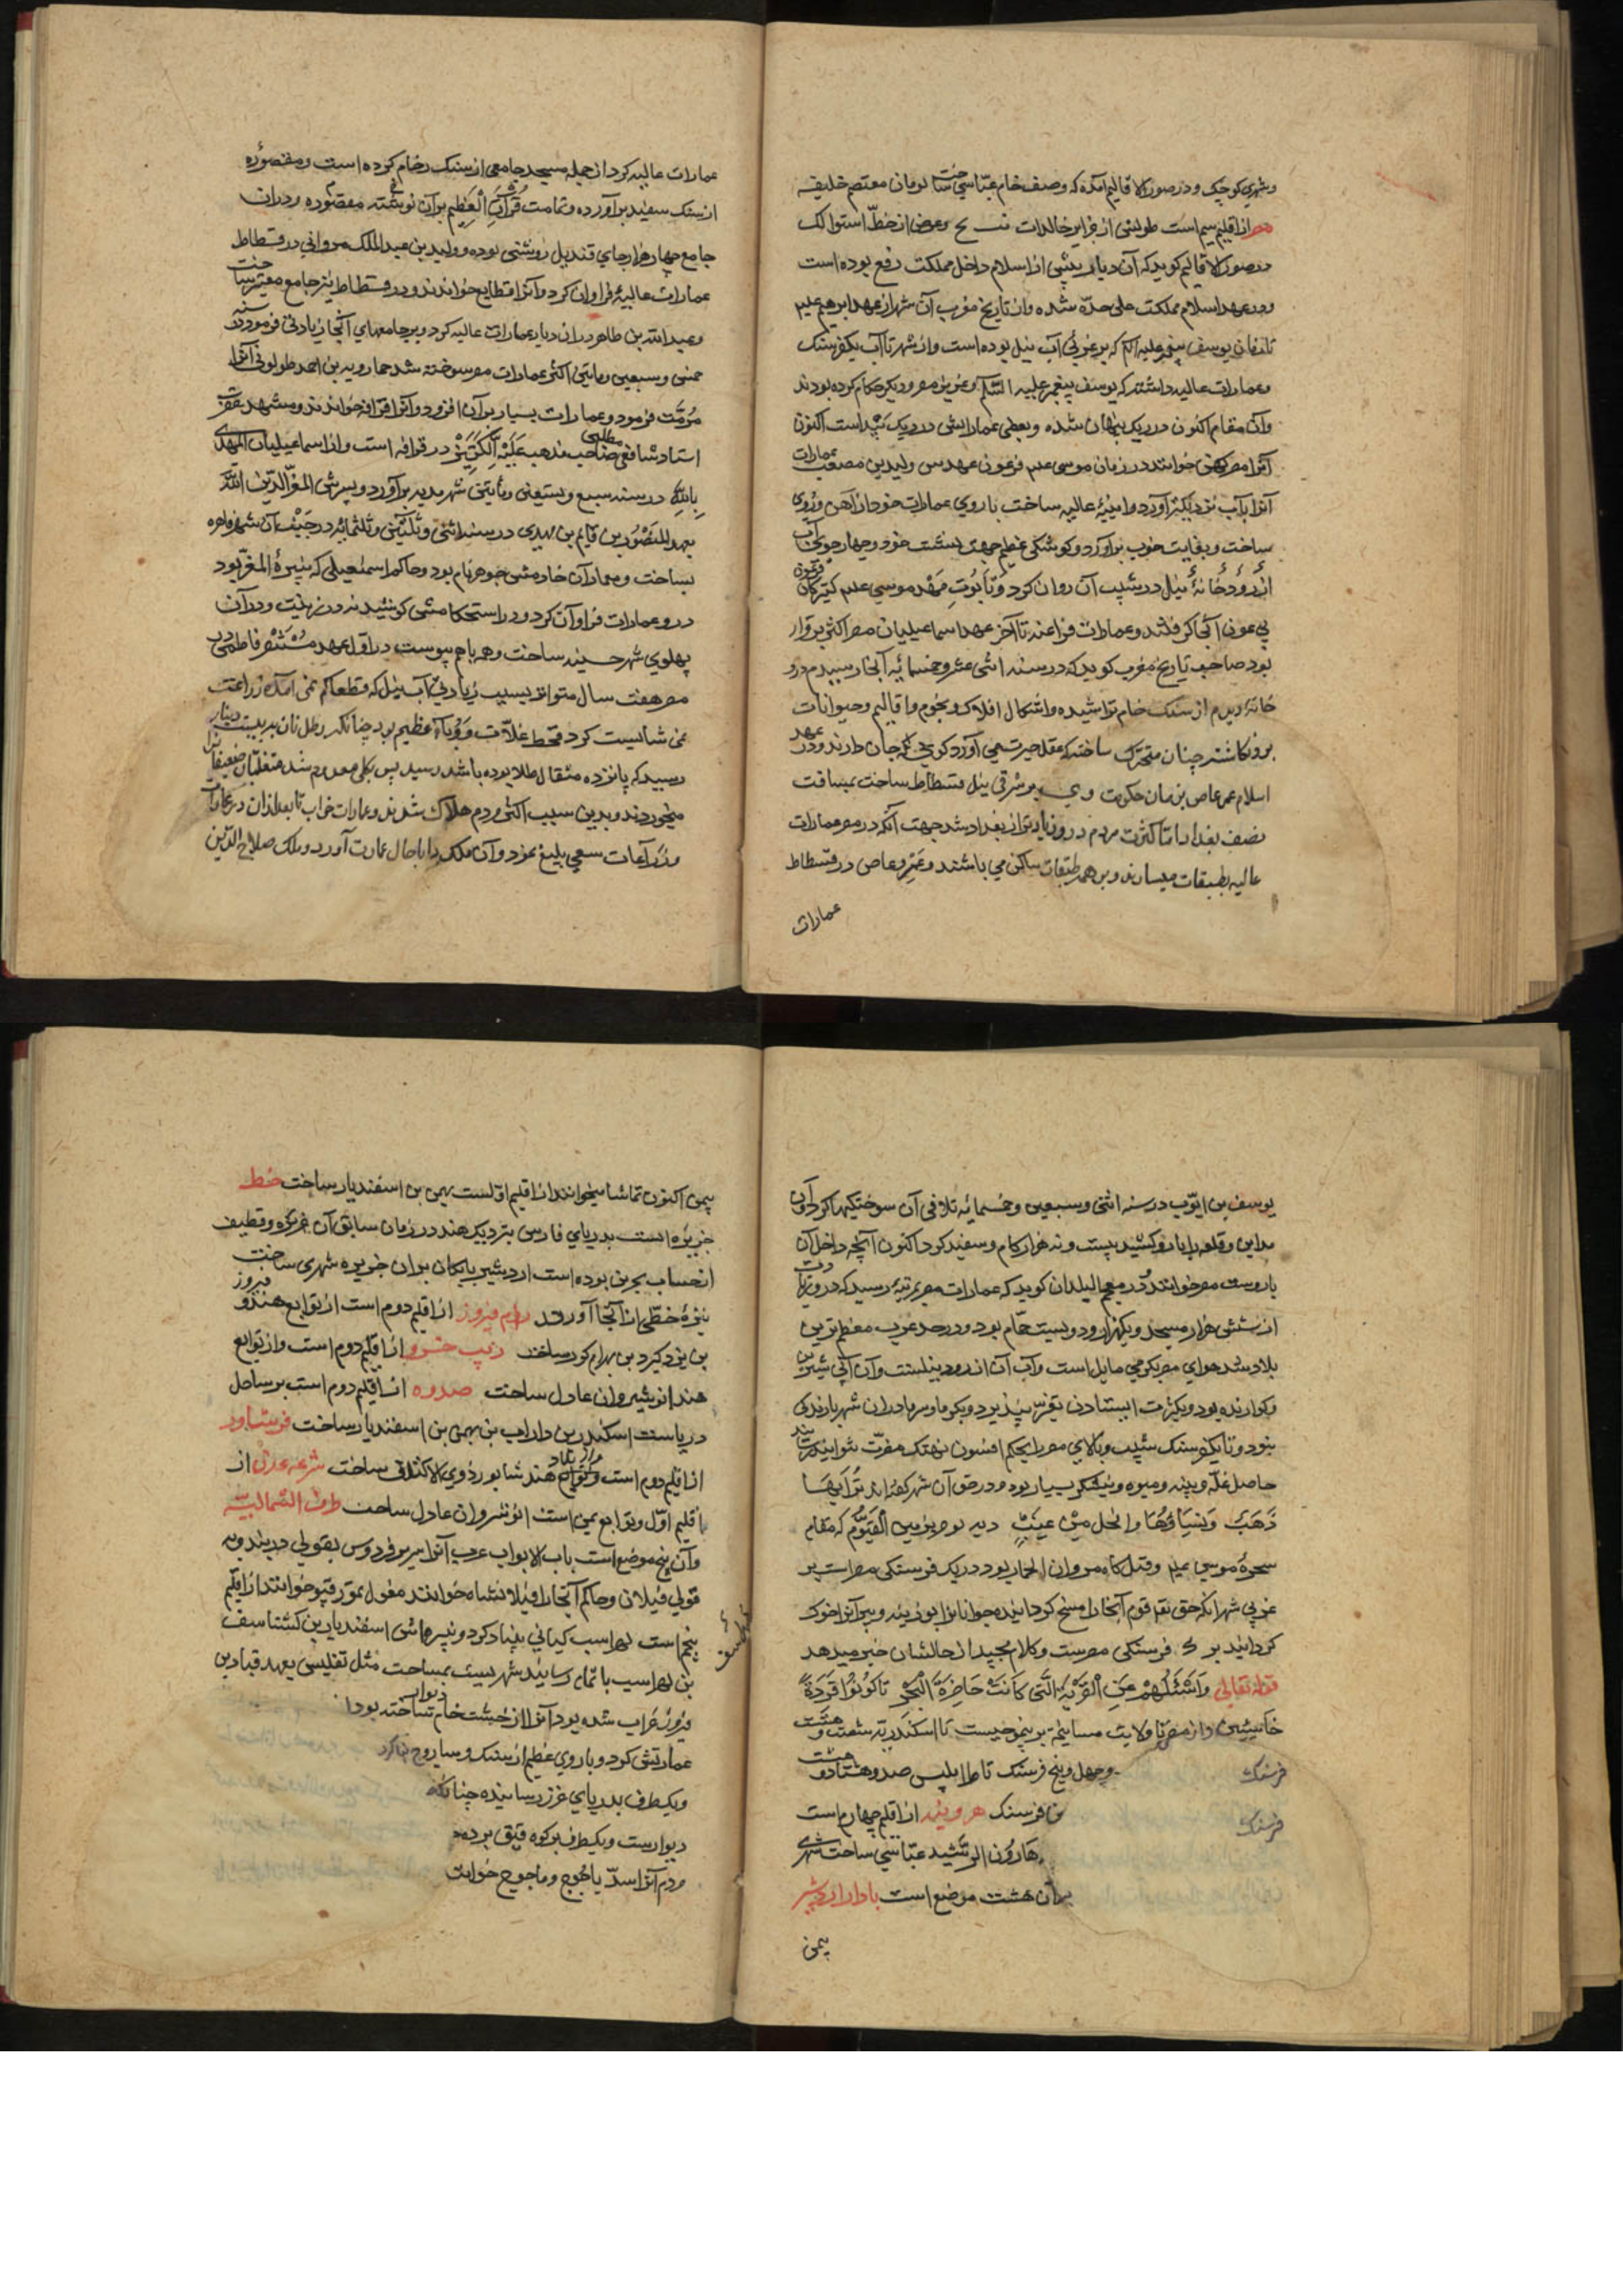 وشهری کوچک ودر صور الاقالیم آمده که وصف خام عباسی ساخت بومان معتصم خلیفه
مصر از اقلیم سیم است طولش از جزایر خالدات وعرض از خط استوا
در صور الاقالیم کوید که آن دیار پیش از اسلام داخل مملکت بوده است
ودر عهد اسلام مملکت علی حده شده واز تاریخ مغرب آن شهر از عهد ابرهیم علیه
تا زمان یوسف پیغمبر علیه السلام که بر غربی آب نیل بوده است واز شهر تا آب یکفرسنک
وعمارات عالیه داشته که یوسف پیغمبر علیه السلام وعزیز مصر ودیکر حکام کرده بودند
وآن مقام اکنون در ریک پنهان شده وبعضی عماراتش در ریک پیداست اکنون
آنرا مصر کهن خوانند در زمان موسی علیه فرعون عهدش ولید بن مصعب عمارات
آنرا بآب نزدیکتر آورد وابنیهٔ عالیه ساخت باروی عمارات خود از آهن وروی
ساخت وبغایت خوب برآورد وکوشکی عظیم جهت نشست خود وچهار جوی آب
از رودخانهٔ نیل در شیب آن روان کرد وتابوت مهد موسی علیه کنیزکان فرعون
آنجا کرفتند وعمارات فراعنه تا آخر عهد اسماعیلیان مصر اکثر برقرار
بود صاحب تاریخ مغرب کوید که در سنه اثنی عشر وخمسمایه آنجا رسیدم در و
خانهٔ دیدم از سنک خام تراشیده واشکال افلاک ونجوم واقالیم وحیوانات
برونکاشته چنان متحرک ساخته که عقل حیرت می آورد کویی که جان دارند ودر عهد
اسلام عمر عاص بزمان حکومت وی بر شرقی نیل فسطاط ساخت بمسافت
نصف بغداد اما کثرت مردم درو زیادتر از بغداد شد جهت آنکه در مصر عمارات
عالیه بطبقات میسازند وبر همه طبقات ساکن می باشند وعمرو عاص در فسطاط
عمارات
عمارات عالیه کرد از جمله مسجد جامعی از سنک رخام کرده است ومقصوره
از سنک سفید برآورده وتمامت قرآن العظیم برآن نوشته مقصوره ودران
جامع چهار هزار جای قندیل روشنی بوده وولید بن عبد الملک مروانی در فسطاط
عمارات عالیه فراوان کرد وآنرا قطایع خوانند ودر فسطاط نیز جامع معتبر ساخت
وعبد الله بن طاهر دران دیار عمارات عالیه کرد وبر جامعهای آنجا زیادتی فرمود در سنه
خمس وسبعین ومایتین اکثر عمارات مصر سوخته شد خمارویه بن احمد طولونی آنرا
مرمت فرمود وعمارات بسیار برآن افزود وآنرا قرافه خوانند ومشهد
استاد شافعی مطلبی صاحب مذهب در قرافه است واز اسماعیلیان المهدی
بالله در سنه سبع وتسعین ومایتین شهر مدیه برآورد وپسرش المعز لدین الله
بعهد المنصور بن قایم بن مهدی در سنه اثنی وثلثین وثلثمایه در جنب آن شهر قاهره
بساخت ومعمار آن خادمش جوهر نام بود وحاکم اسمعیلی که نبیرهٔ المعز بود
درو عمارات فراوان کرد ودر استحکامش کوشیدند در زینت ودر آن
پهلوی شهر حسینه ساخت وهر با هم پیوست در اول عهد مستنصر فاطمی در
مصر هفت سال متواتر بسبب زیادتی آب نیل که قطعا کم نمی آمد زراعت
نمی شایست کرد قحط غلات ووباء عظیم بود چنانکه رطل نان به بیست دینار
رسید که پانزده مثقال طلا بوده باشد رسید پس بکلی معدوم شد متغلبان ضعیفانرا
میخوردند وبدین سبب اکثر مردم هلاک شدند وعمارات خراب تا بعد ازان در عمارات
وزراعات سعی بلیغ نمود وآن ملک را باحال عمارت آورد وملک صلاح الدین
یوسف بن ایوب در سنه اثنی وسبعین وخمسمایه تلافی آن سوختکیها کرد وآن
مداین وقلعه را بارو کشید بیست ونه هزار کام وسفید کرد اکنون آنچه داخل آن
باروست مصر خوانند ودر معجم البلدان کوید که عمارات مصر بمرتبه رسید که درو
از شش هزار مسجد ویکهزار ودویست حمام بود ودر حد غرب معظم ترین
بلاد شد هوای مصر بکرمی مایل است وآب آن از رود نیلست وآن آبی شیرین
وکوارنده بود وبکثرت ایستادن تغیر نپذیرد وبکرما وسرما دران شهر بارندکی
نبود وتا یکفرسنک شیب وبالای مصر بحکم افسون نهنک مضرت نتواند رسانید
حاصل غله وپنبه ومیوه ونیشکر بسیار بود ودر حق آن شهر کفته اند ترابها
ذهب ونساؤها والنحل من عنب دیه بوصیر من الفیوم که مقام
سحرهٔ موسی علیه وقتل کاه مروان الحمار بود در یک فرسنکی مصر است بر
غربی شهر آنکه حق تعالی قوم آنجا را مسخ کردانیده جوانانرا بوزینه وپیرانرا خوک
کردانید بر فرسنکی مصرست وکلام مجید از حالشان خبر میدهد
قوله تعالی واسئلهم عن القریة التی کانت حاضرة البحر تا کونوا قردة
خاسئین واز مصر تا ولایت مسافتها بر بیست تا اسکندریه شصت وهشت
فرسنک وچهل وپنج فرسنک تا طرابلس صد وهشتاد وهشت
فرسنک فرسنک هرونیه از اقلیم چهارم است
هارون الرشید عباسی ساخت شهری
برآن هشت موضع است بادار اردشیر
یمن
یمن اکنون تماشا میخوانند از اقلیم اولست بهمن بن اسفندیار ساخت خط
جزیره است بدریای فارس نزدیک هند در زمان سابق آن وقطیف
از حساب بحرین بوده است اردشیر بابکان بران جزیره شهری ساخت
نیزهٔ خطی از آنجا آورند رام فیروز از اقلیم دوم است از توابع هند فیروز
بن یزدکرد بن بهرام کور ساخت زیب خسرو از اقلیم دوم است واز توابع
هند انوشیروان عادل ساخت صدوه از اقلیم دوم است بر ساحل
دریاست اسکندر بن داراب بن بهمن بن اسفندیار ساخت فرشاور
از اقلیم دوم است از بلاد هند شابور ذوی الاکتاف ساخت شرعه عدن از
اقلیم اول وتوابع یمن است انوشروان عادل ساخت طرف الشمالیة
وآن پنج موضع است باب الابواب عرب آنرا سریر فردوس بقولی دربند وبه
قولی فیلان وحاکم آنجا را فیلانشاه خوانند مغول تمور قپو خوانند از اقلیم
پنجم است لهراسب کیانی بنیاد کرد ونبیره اش اسفندیار بن کشتاسف
بن لهراسب باتمام رسانید شهریست بمساحت مثل تفلیس بعهد قباد بن
فیروز خراب شده بود آنرا از خشت خام دیوار ساخته بود
عمارتش کرد وباروی عظیم از سنک وساروج
ویکطرف بدریای خزر رسانیده چنانکه
دیوارست ویکطرف بر کوه قبق برده
مردم آنرا سد یاجوج وماجوج خوانند